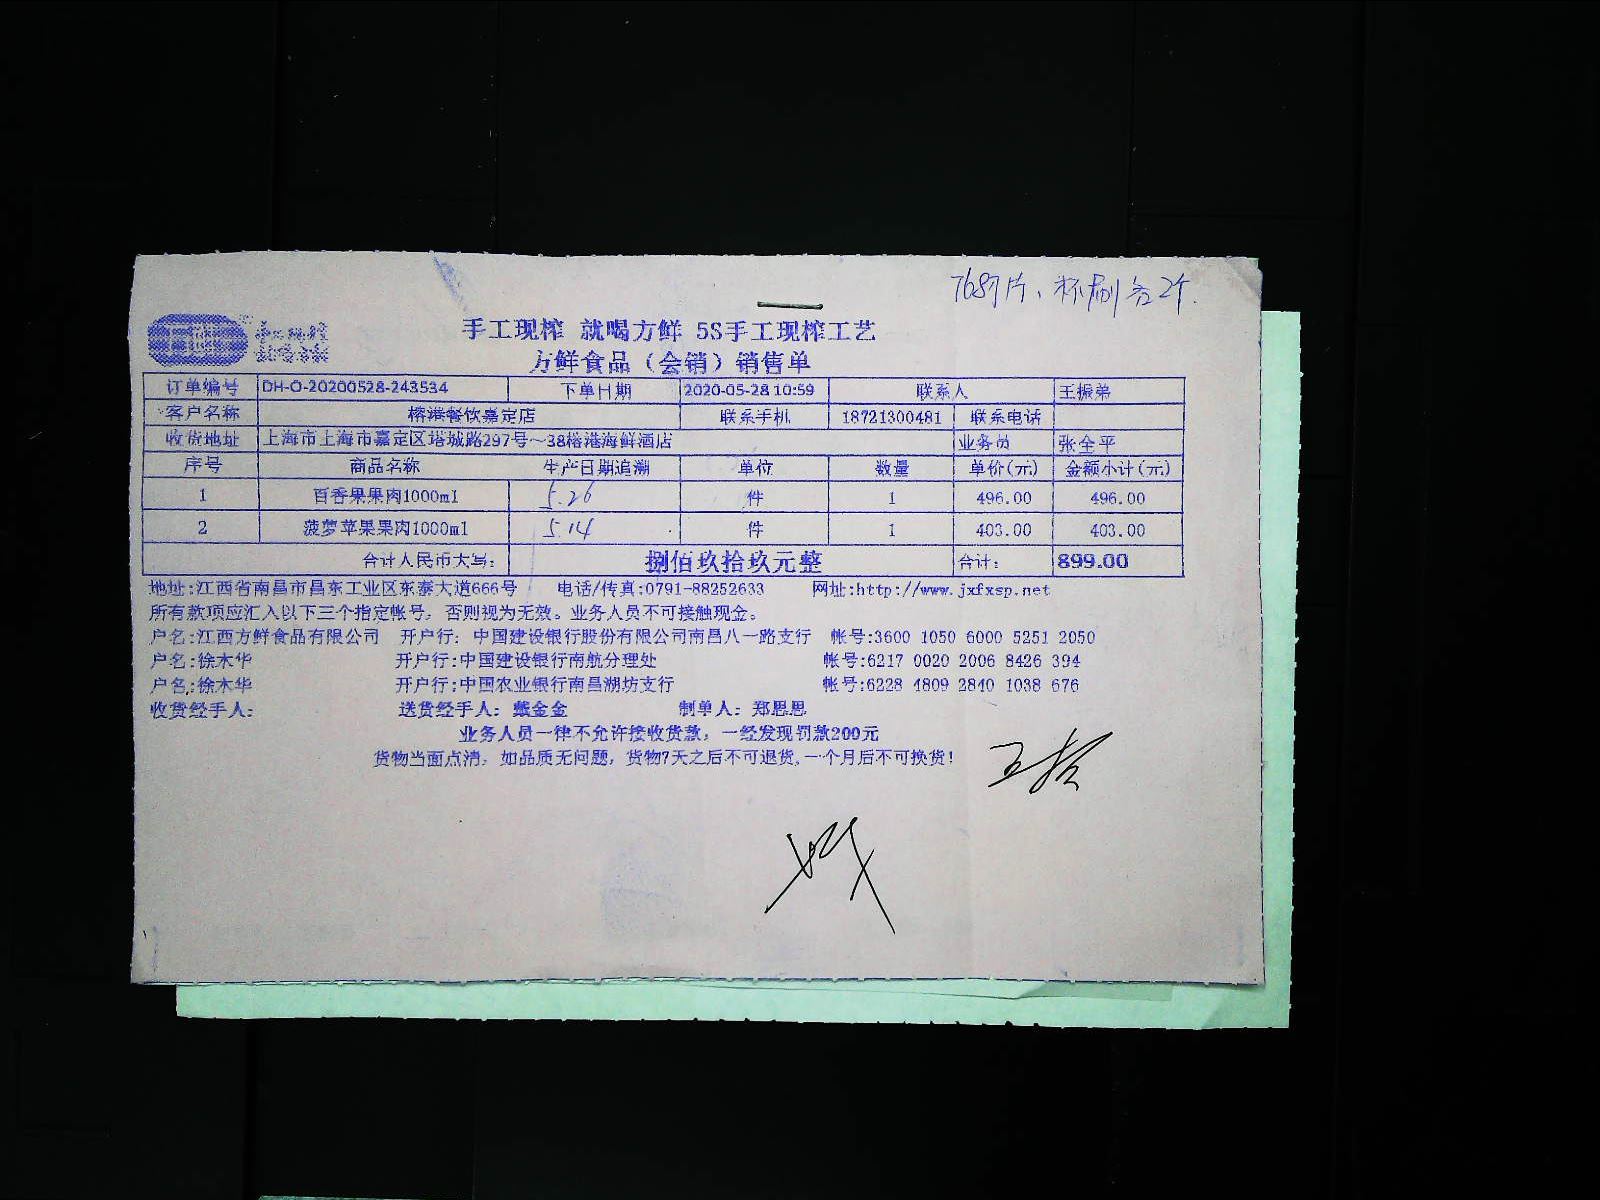 手工现榨 就喝方鲜 5S手工现榨工艺
方鲜食品（会销）销售单
订单编号 DH-O-20200528-243534 下单日期 2020-05-28 10:59 联系人 王振弟
客户名称 榕港餐饮嘉定店 联系手机 18721300481 联系电话
收货地址 上海市上海市嘉定区塔城路297号～38榕港海鲜酒店 业务员 张全平
序号 商品名称 生产日期追溯 单位 数量 单价(元) 金额小计(元)
1 百香果果肉1000ml 5.26 件 1 496.00 496.00
2 菠萝苹果果肉1000ml 5.14 件 1 403.00 403.00
合计人民币大写: 捌佰玖拾玖元整 合计: 899.00
地址:江西省南昌市昌东工业区东泰大道666号 电话/传真:0791-88252633 网址:http://www.jxfxsp.net
所有款项应汇入以下三个指定帐号，否则视为无效。业务人员不可接触现金。
户名:江西方鲜食品有限公司 开户行: 中国建设银行股份有限公司南昌八一路支行 帐号:3600 1050 6000 5251 2050
户名:徐木华 开户行:中国建设银行南航分理处 帐号:6217 0020 2006 8426 394
户名:徐木华 开户行:中国农业银行南昌湖坊支行 帐号:6228 4809 2840 1038 676
收货经手人: 送货经手人: 戴金金 制单人: 郑思思
业务人员一律不允许接收货款，一经发现罚款200元
货物当面点清，如品质无问题，货物7天之后不可退货,一个月后不可换货！